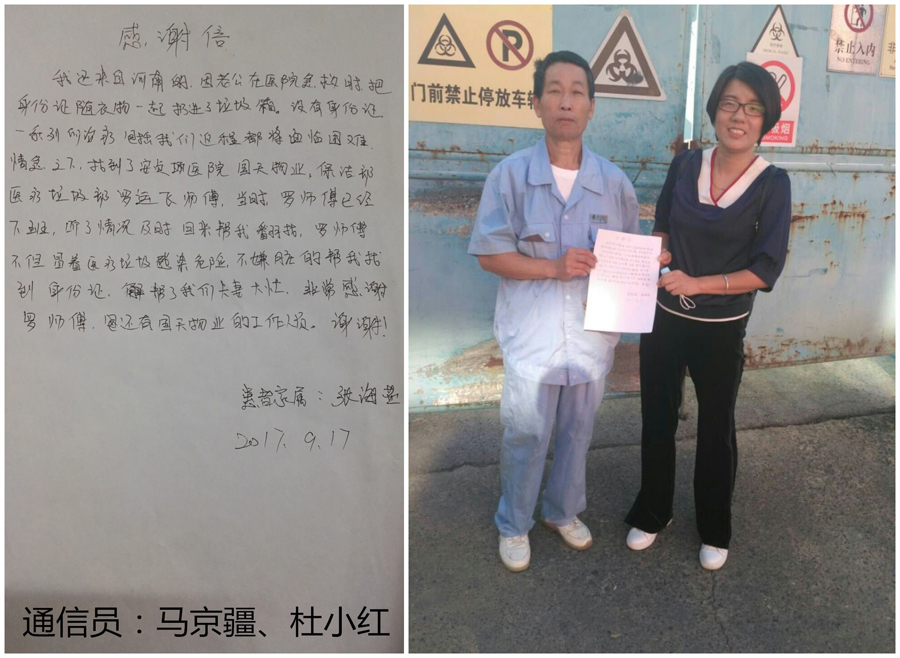 感谢信
我是来自河南的，因老公在医院急救时把
身份证随衣物一起扔进了垃圾箱。没有身份证
一系列的治疗包括我们返程都将面临困难
情急之下，找到了安贞医院国天物业，保洁部
医疗垃圾部罗运飞师傅，当时罗师傅已经
下班，听了情况及时回来帮我翻找，罗师傅
不但冒着医疗垃圾感染危险，不嫌脏的帮我找
到身份证，帮了我们夫妻大忙，非常感谢
罗师傅，还有国天物业的工作人员。谢谢！
患者家属：张海
2017.9.17
通信员：马京疆、杜小红
门前禁止停放车辆
P
禁止入内
NO ENTERING
禁止吸烟
SMOKING